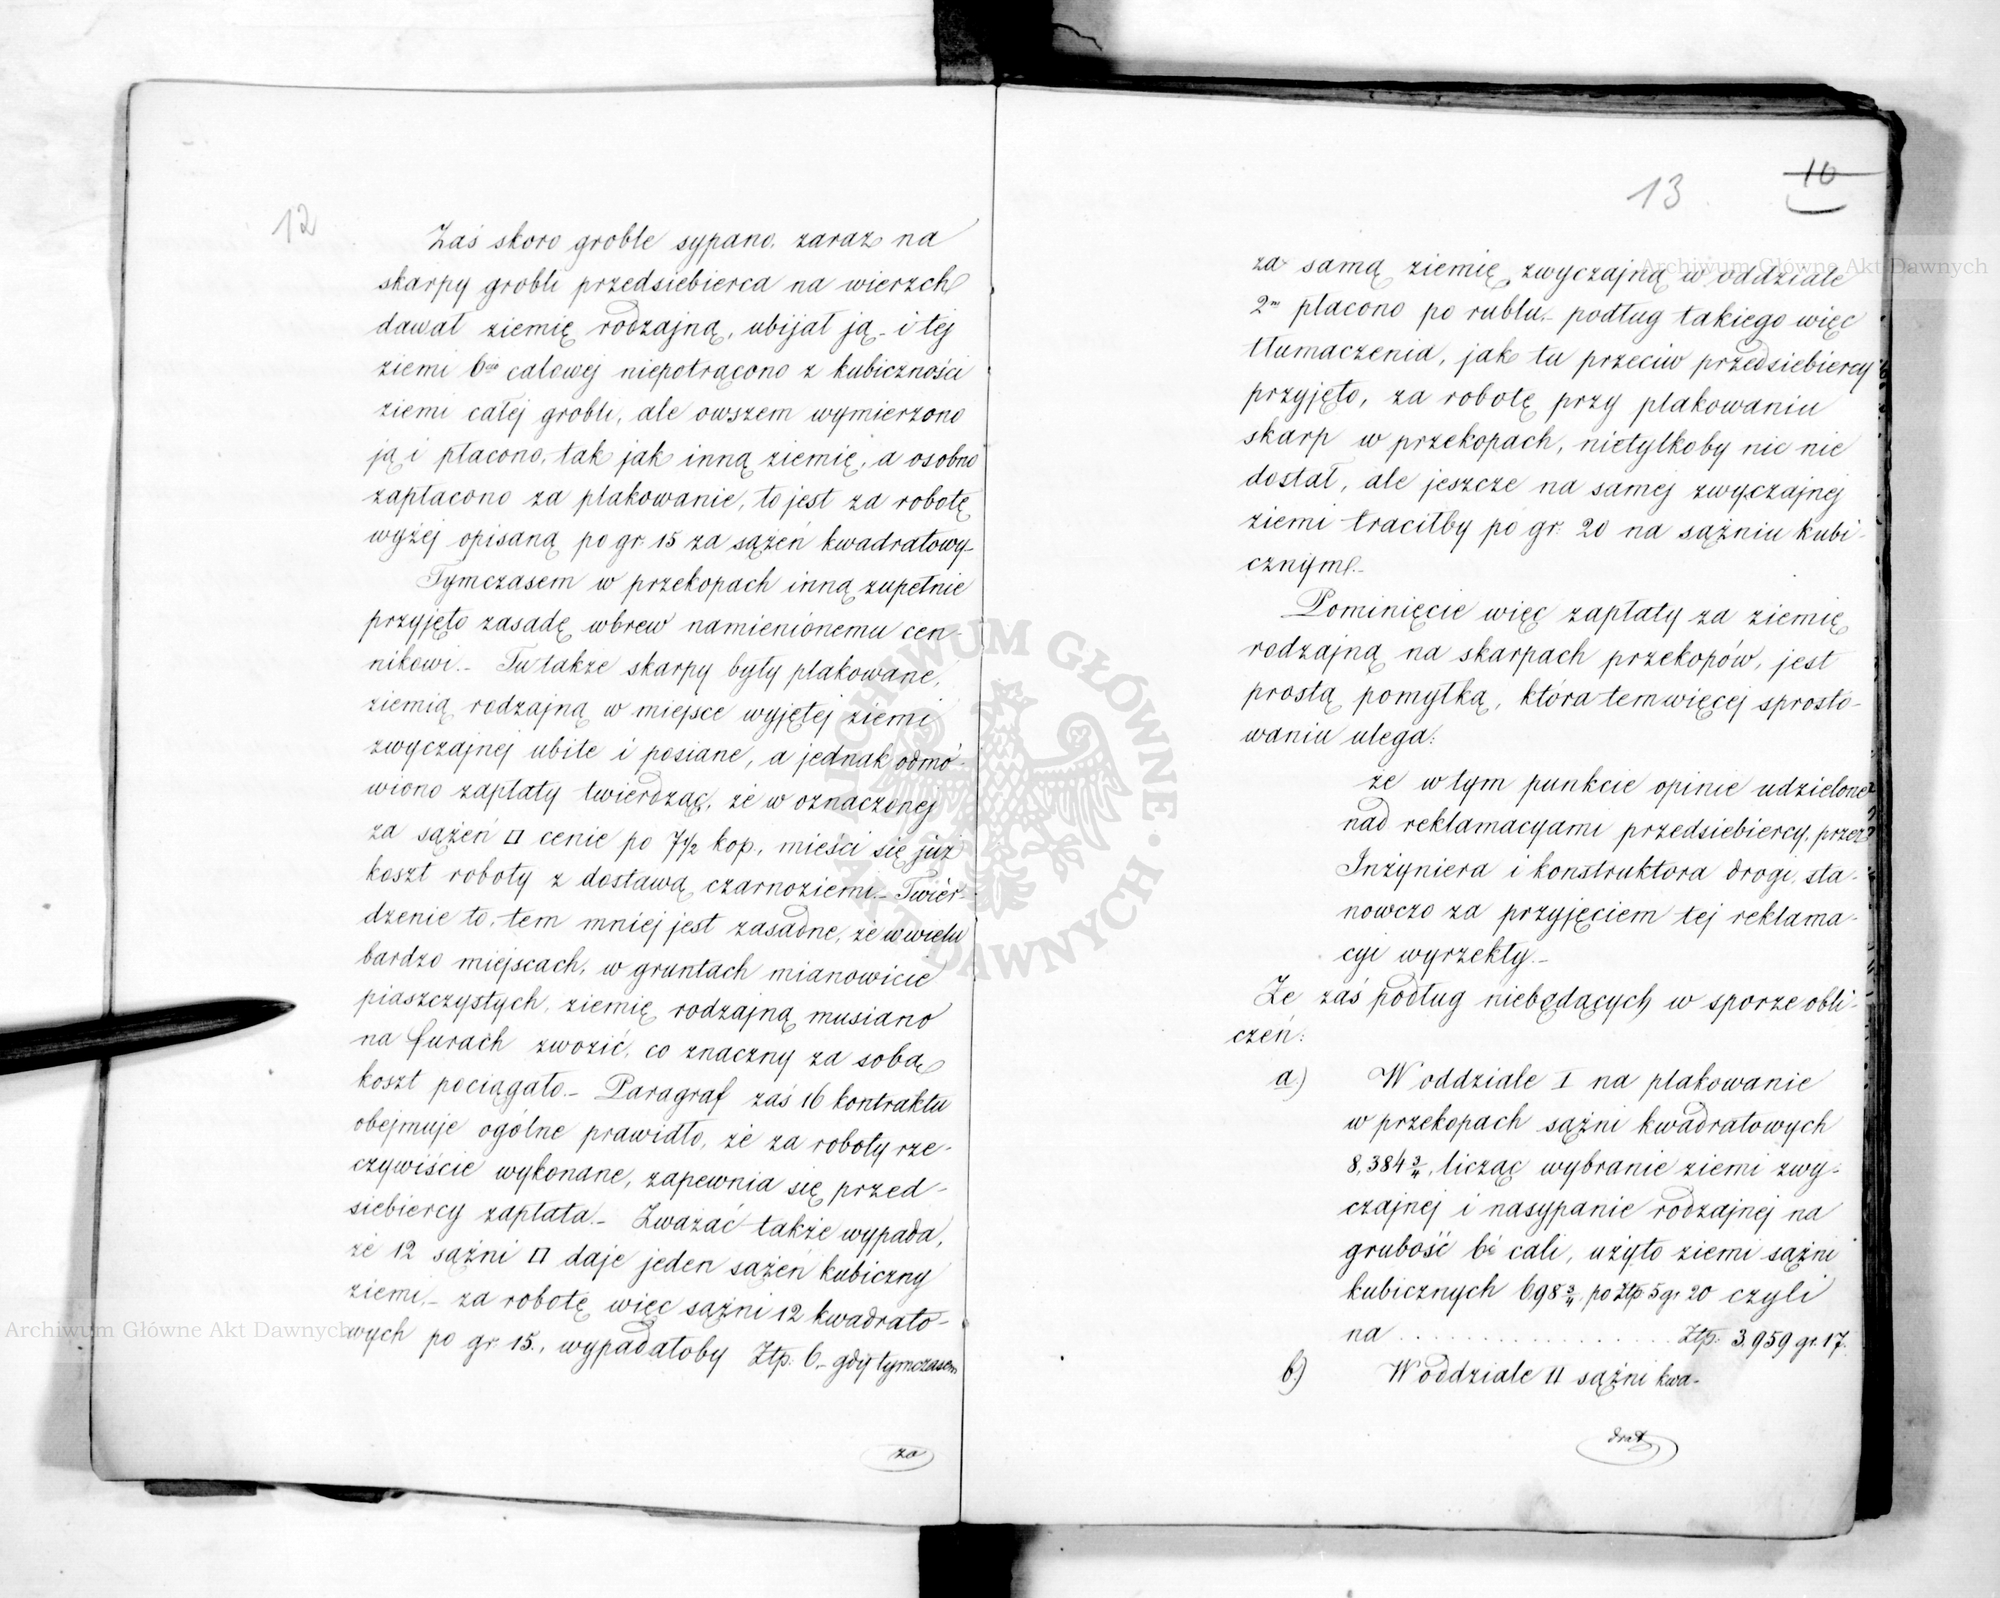 12
Zaś skoro groble sypano, zaraz na
skarpy grobli przedsiebierca na wierzch
dawał ziemię rodzajną, ubijał ją - i tej
ziemi 6cio calowej niepotrącono z kubiczności
ziemi całej grobli, ale owszem wymierzono
ją i płacono, tak jak inną ziemię, a osobno
zapłacono za plakowanie, to jest za robotę
wyżej opisaną po gr 15 za sążeń kwadratowy.
Tymczasem w przekopach inną zupełnie
przyjęto zasadę wbrew namienionemu cen-
nikowi. - Tu także skarpy były plakowane,
ziemią rodzajną w miejsce wyjętej ziemi
zwyczajnej ubite i posiane, a jednak odmó-
wiono zapłaty twierdząc, że w oznaczonej
za sążeń □ cenie po 7½ kop, mieści się już
koszt roboty z dostawą czarnoziemi. - Twier-
dzenie to, tem mniej jest zasadne, że w wielu
bardzo miejscach, w gruntach mianowicie
piaszczystych, ziemię rodzajną musiano
na furach zwozić, co znaczny za sobą
koszt pociągało. - Paragraf zaś 16 kontraktu
obejmuje ogólne prawidło, że za roboty rze-
czywiście wykonane, zapewnia się przed-
siebiercy zapłata. - Zważać także wypada,
że 12 sążni □ daje jeden sążeń kubiczny
ziemi, - za robotę więc sążni 12 kwadrato-
wych po gr. 15., wypadałoby Złp: 6, - gdy tymczasem
za
13
10
za samą ziemię zwyczajną w oddziale
2m płacono po rublu. - podług takiego więc
tłumaczenia, jak tu przeciw przedsiebiercy
przyjęto, za robotę przy plakowaniu
skarp w przekopach, nietylkoby nic nie
dostał, ale jeszcze na samej zwyczajnej
ziemi traciłby po gr: 20 na sążniu kubi-
cznym. -
Pominięcie więc zapłaty za ziemię
rodzajną na skarpach przekopów, jest
prostą pomyłką, która temwięcej sprosto-
waniu ulega:
że w tym punkcie opinie udzielone
nad reklamacyami przedsiebiercy, przez
Inżyniera i konstruktora drogi, sta-
nowczo za przyjęciem tej reklama-
cyi wyrzekły. -
Że zaś podług niebędących w sporze obli-
czeń:
a.) W oddziale I na plakowanie
w przekopach sążni kwadratowych
8,384 3/4, licząc wybranie ziemi zwy-
czajnej i nasypanie rodzajnej na
grubość 6ć cali, użyto ziemi sążni
kubicznych 698 3/4 po Złp 5 gr 20 czyli
na . . . . . . . . . . . . . . . . . Złp: 3,959 gr. 17.
b.) W oddziale II sążni kwa-
drat
Archiwum Główne Akt Dawnych
Archiwum Główne Akt Dawnych
ARCHIWUM GŁÓWNE AKT DAWNYCH